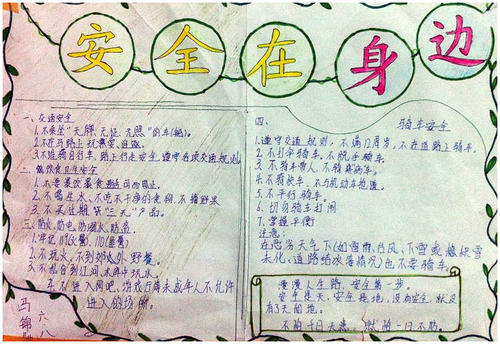 安全在身边
一、交通安全
1.不乘坐"无牌、无证、无照"的车(船)。
2.不在马路上玩耍、追逐。
3.不骑自行车、路上行走安全遵守各项交通规则
二、饮食卫生安全
1.不要暴饮暴食
2.不喝生水、不吃不干净的食物、不捡野果
3.不买过期"三无"产品。
三、防火、防电、防溺水、防盗
1.牢记119(火警)、110(匪警)
2.不玩火、不到郊外野餐。
3.不私自到江河、水库中玩水
4.不进入网吧、游戏厅等未成年人不允许
进入的场所。
四、骑车安全
1.遵守交通规则，不满12周岁，不在道路上骑车。
2.不打伞骑车、不脱手骑车。
3.不骑车带人、不骑病车。
4.不骑快车、不与机动车抢道。
5.不平行骑车
6.切勿骑车打闹
7.掌握平衡
注意：
在恶劣天气下(如雷雨、台风、下雪或积雪
未化、道路结冰等情况)也不要骑车。
漫漫人生路，安全第一步。
安全是天，安全是地，没有安全就没
有了天和地。
不怕千日无祸，就怕一日不防。
六八
马锦